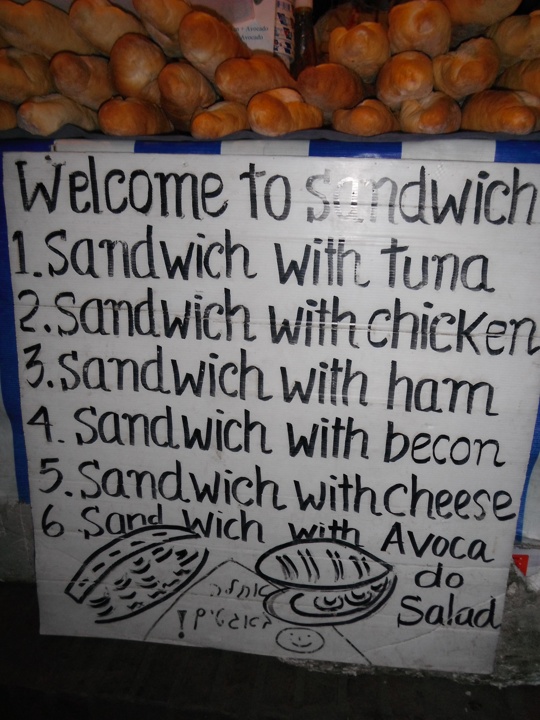 Welcome to Sandwich
1. Sandwich with tuna
2. Sandwich with chicken
3. Sandwich with ham
4. Sandwich with becon
5. Sandwich with cheese
6 Sand wich with Avoca
do
Salad
אחלה
באגטים!